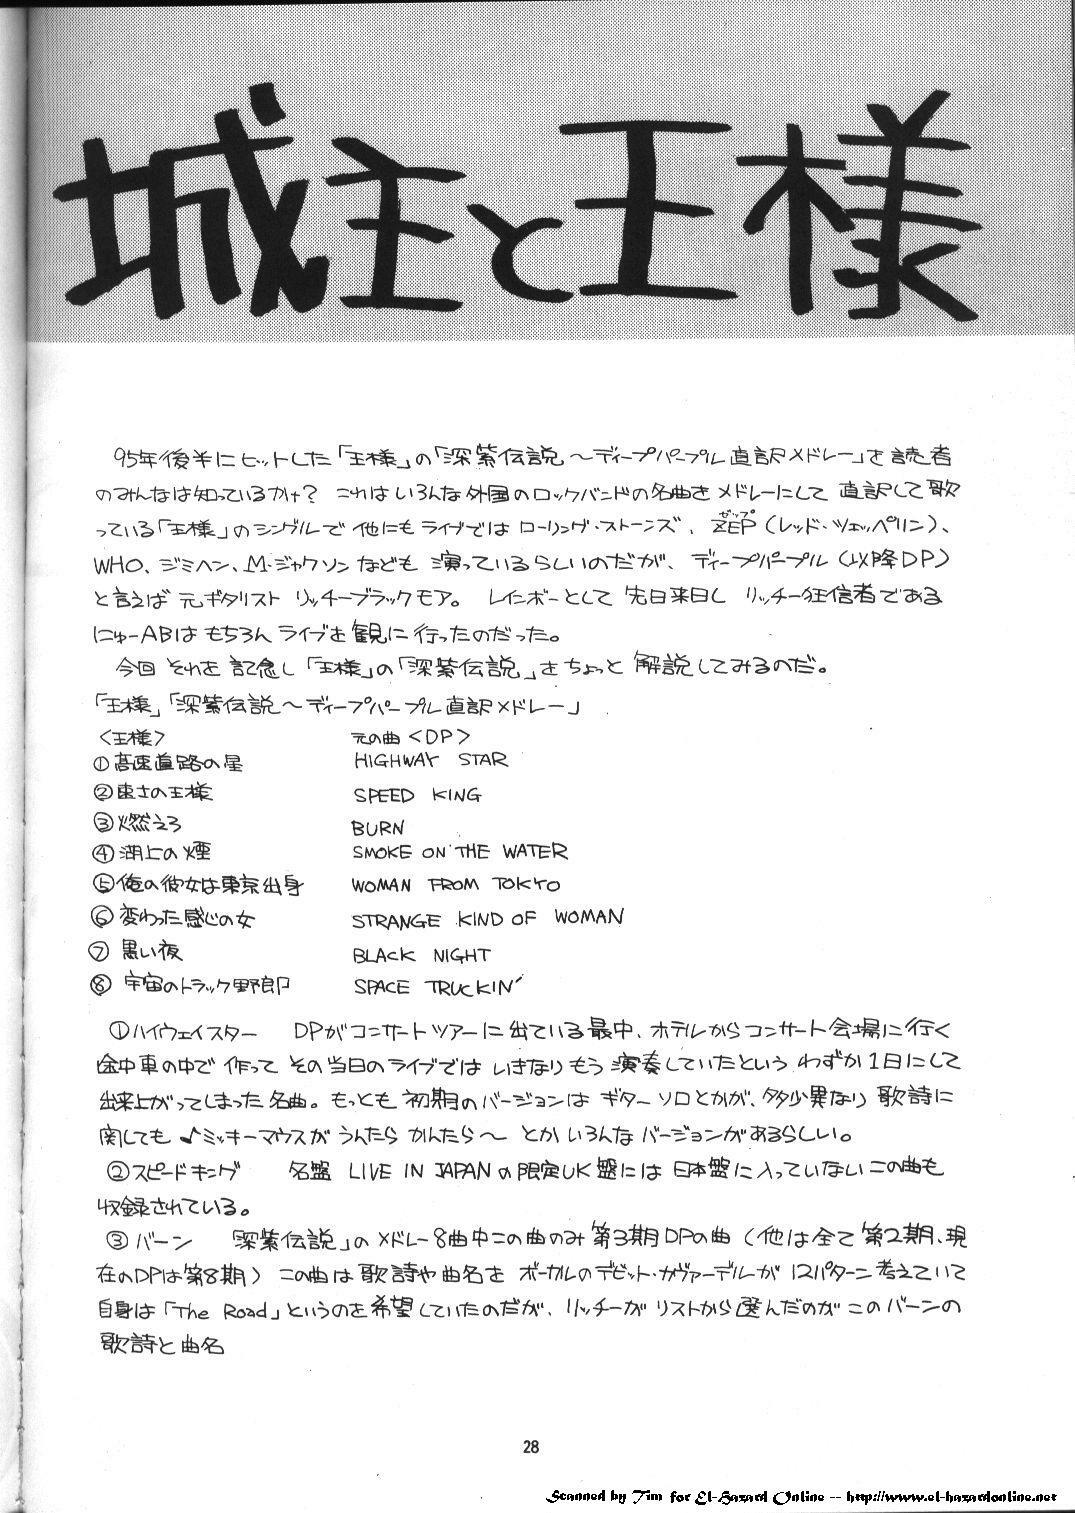 城主と王様
95年後半にヒットした「王様」の「深紫伝説～ディープパープル直訳メドレー」を読者
のみんなは知っているかけ? これはいろんな外国のロックバンドの名曲をメドレーにして 直訳して歌
っている「王様」のシングルで 他にも ライブでは ローリング・ストーンズ、ZEP(レッド・ツェッペリン)、
ゼップ
WHO、ジミヘン、M・ジャクソンなども 演っているらしいのだが、ディープパープル(以降DP)
と言えば 元ギタリスト リッチーブラックモア。 レインボーとして 先日来日し リッチー狂信者である
にゅーABは もちろん ライブを観に行ったのだった。
今回 それを 記念し「王様」の「深紫伝説」をちょっと 解説してみるのだ。
「王様」「深紫伝説～ディープパープル直訳メドレー」
<王様> 元の曲<DP>
①高速道路の星 HIGHWAY STAR
②速さの王様 SPEED KING
③燃えろ BURN
④湖上の煙 SMOKE ON THE WATER
⑤俺の彼女は東京出身 WOMAN FROM TOKYO
⑥変わった感じの女 STRANGE KIND OF WOMAN
⑦黒い夜 BLACK NIGHT
⑧宇宙のトラック野郎 SPACE TRUCKIN'
①ハイウェイスター DPがコンサートツアーに出ている最中、ホテルからコンサート会場に行く
途中車の中で 作って その当日のライブでは いきなりもう 演奏していたという わずか1日にして
出来上がってしまった名曲。もっとも 初期のバージョンは ギターソロとかが、多少異なり 歌詩に
関しても ♪ミッキーマウスが うんたら かんたら～ とか いろんな バージョンがあるらしい。
②スピードキング 名盤 LIVE IN JAPANの限定UK盤には 日本盤に入っていないこの曲も
収録されている。
③バーン 「深紫伝説」のメドレー8曲中この曲のみ 第3期DPの曲(他は全て 第2期、現
在のDPは第8期) この曲は 歌詩や曲名を ボーカルのデビット・カヴァーデルが 12パターン考えていて
自身は「The Road」というのを希望していたのだが、リッチーが リストから選んだのが このバーンの
歌詩と曲名
28
Scanned by Tim for El-Hazard Online -- http://www.el-hazardonline.net